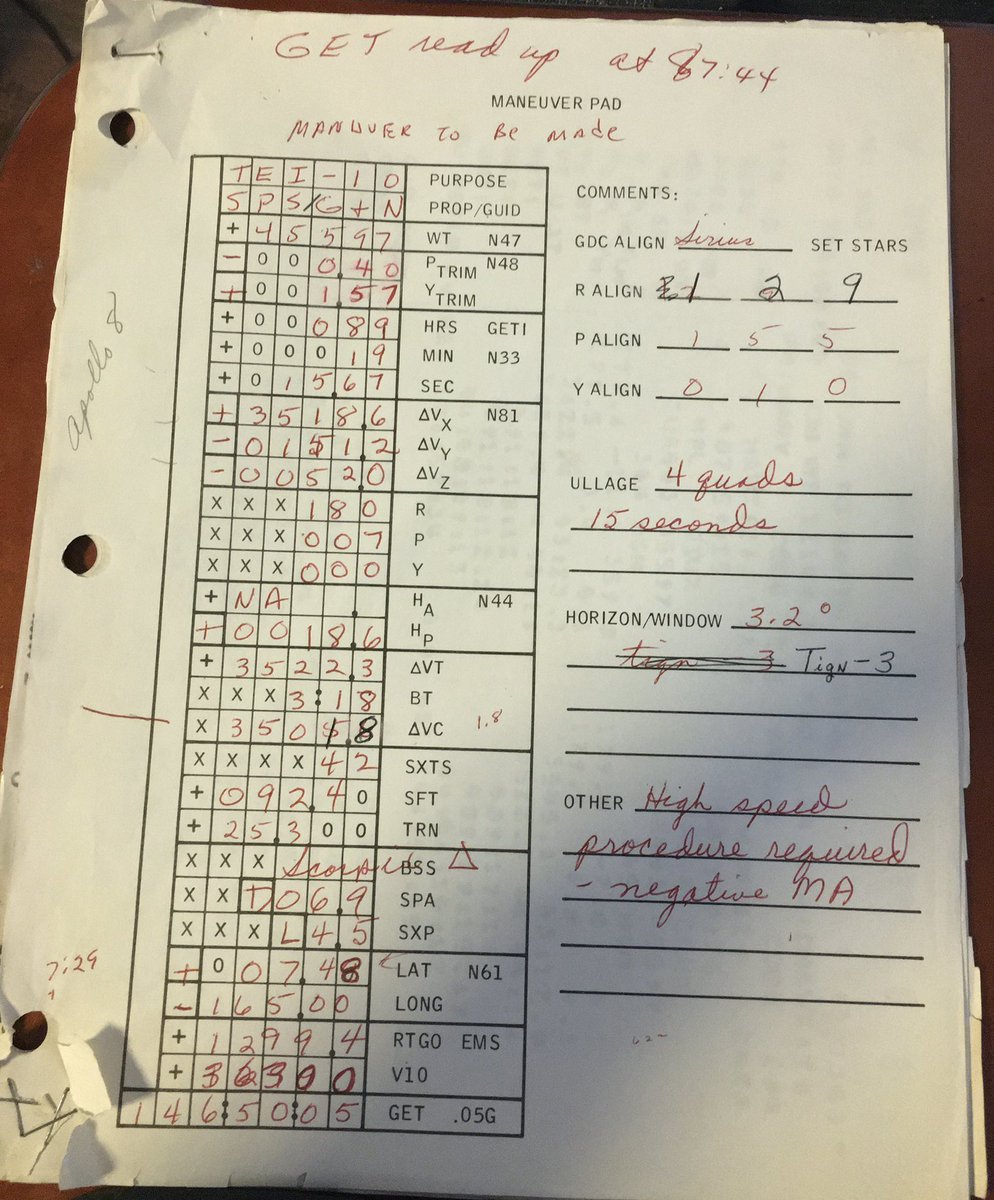 GET read up at 87:44
MANEUVER PAD
MANUVER TO BE MADE
TEI-10 PURPOSE
SPS/G+N PROP/GUID
+45597 WT N47
-000.40 PTRIM N48
+001.57 YTRIM
+00089 HRS GETI
+00019 MIN N33
+015.67 SEC
+3518.6 ΔVX N81
-0151.2 ΔVY
-0052.0 ΔVZ
XXX180 R
XXX007 P
XXX000 Y
+NA . HA N44
+0018.6 HP
+3522.3 ΔVT
XXX3:18 BT
X3501.8 ΔVC 1.8
XXXX42 SXTS
+092.40 SFT
+25.300 TRN
XXX Scorpii BSS Δ
XXD06.9 SPA
XXXL4.5 SXP
7:29
+007.48 LAT N61
-165.00 LONG
+1299.4 RTGO EMS
+36300 V10
146:50:05 GET .05G
Apollo 8
COMMENTS:
GDC ALIGN Sirius SET STARS
R ALIGN 1 2 9
P ALIGN 1 5 5
Y ALIGN 0 1 0
ULLAGE 4 quads
15 seconds
HORIZON/WINDOW 3.2°
tign - 3 TIGN-3
OTHER High speed
procedure required
- negative MA